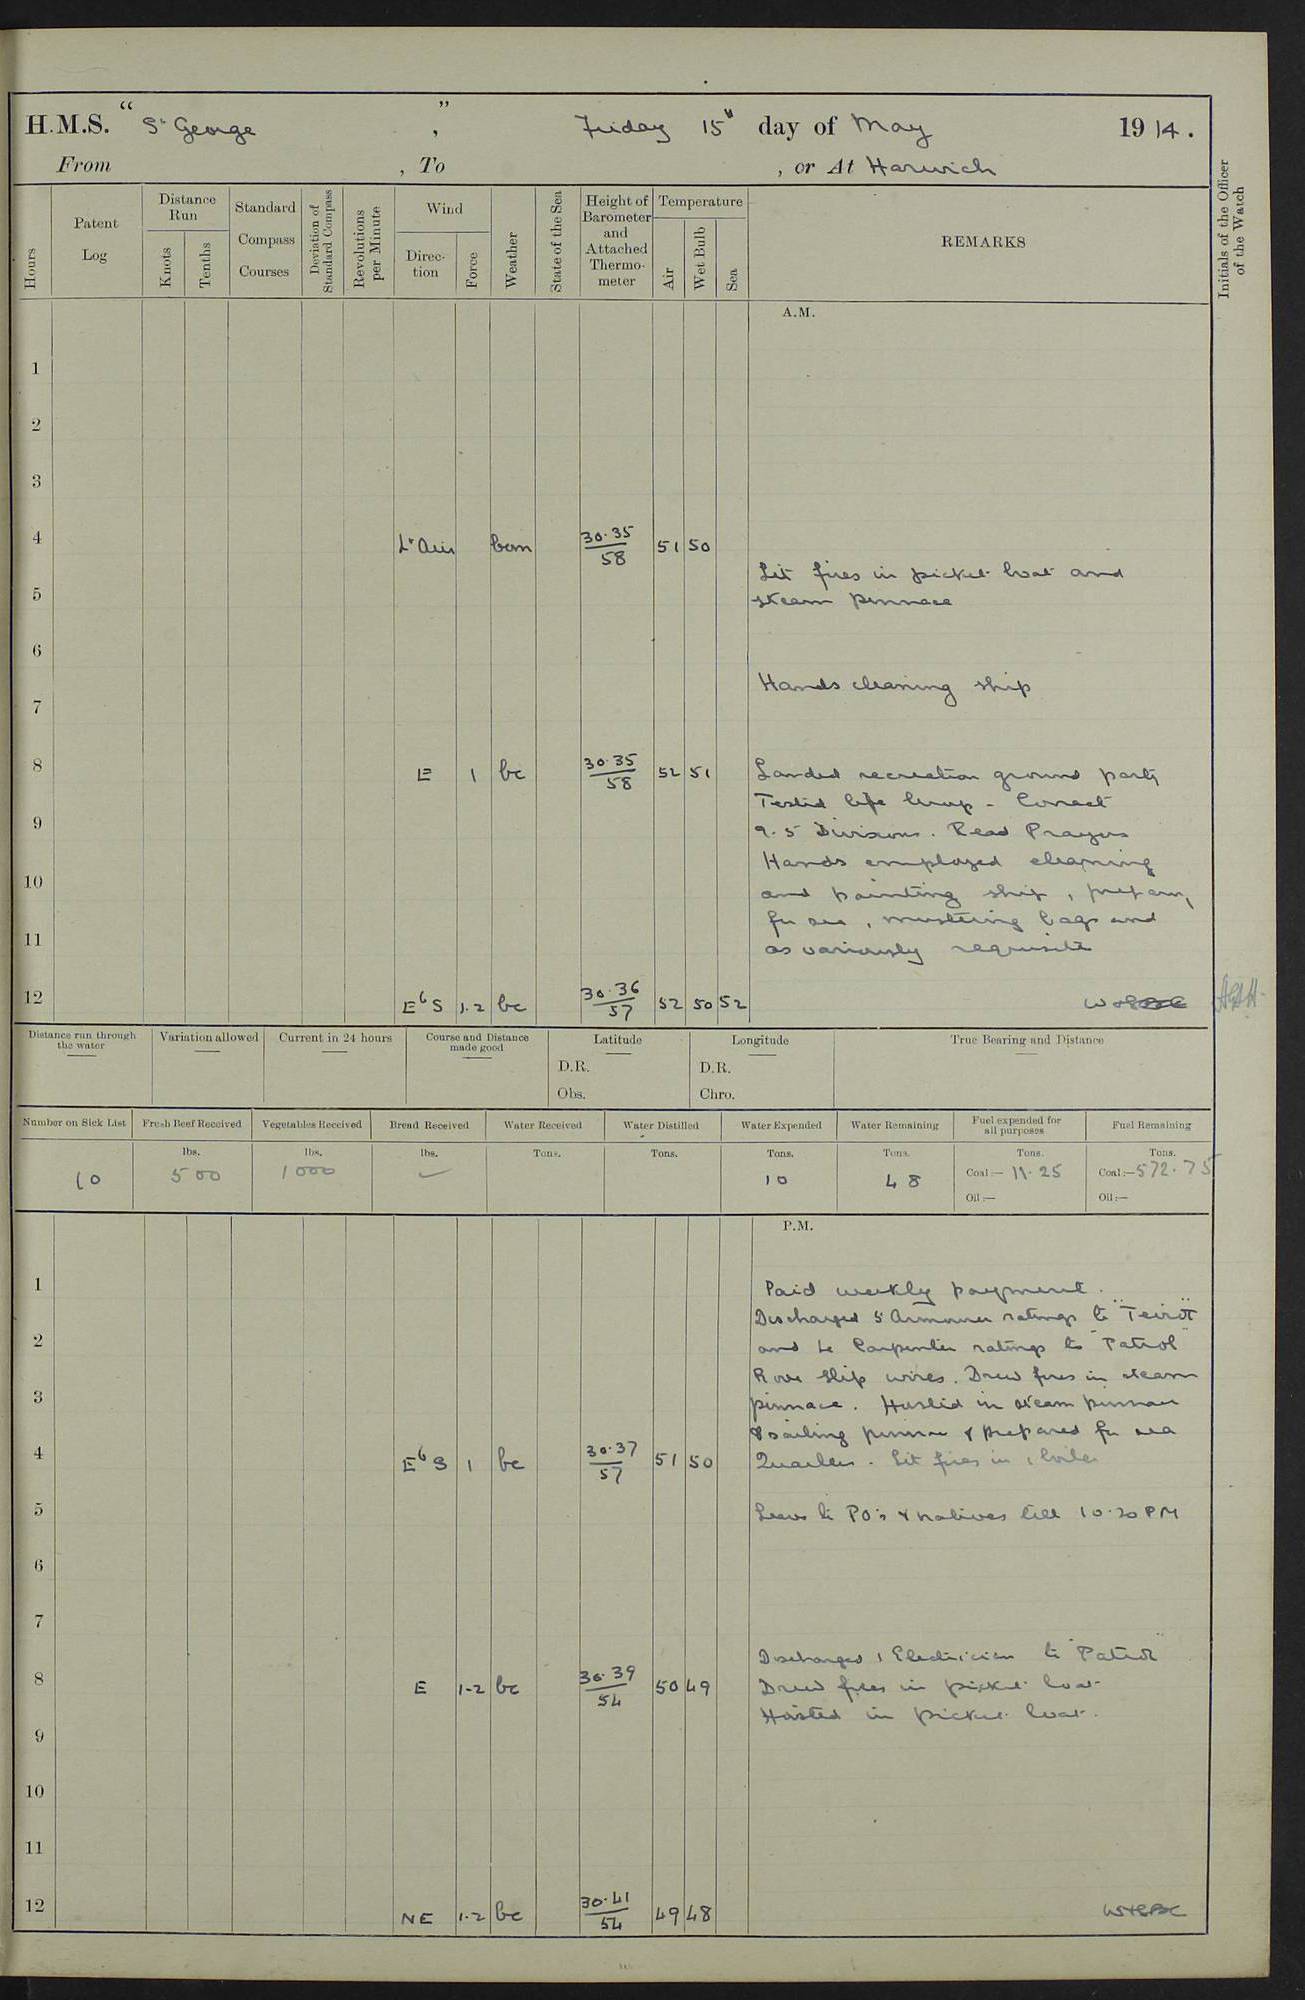 H.M.S. “ St George ” , Friday 15th day of May 1914.
From , To , or At Harwich
Hours
Patent Log
Distance Run
Knots
Tenths
Standard Compass Courses
Deviation of Standard Compass
Revolutions per Minute
Wind
Direction
Force
Weather
State of the Sea
Height of Barometer and Attached Thermometer
Temperature
Air
Wet Bulb
Sea
REMARKS
Initials of the Officer of the Watch
A.M.
1
2
3
4 Lt Airs bcm 30.35 58 51 50
Lit fires in picket boat and
5 steam pinnace
6
Hands cleaning ship
7
8 E 1 bc 30.35 58 52 51 Landed recreation ground party
Tested life buoy - Correct
9 9.5 Divisions. Read Prayers
Hands employed cleaning
10 and painting ship, preparing
for sea, mustering bags and
11 as variously requisite
12 EbS 1.2 bc 30.36 57 52 50 52
Distance run through the water
Variation allowed
Current in 24 hours
Course and Distance made good
Latitude
D.R.
Obs.
Longitude
D.R.
Chro.
True Bearing and Distance
Number on Sick List
10
Fresh Beef Received
lbs.
500
Vegetables Received
lbs.
1000
Bread Received
lbs.
✓
Water Received
Tons.
Water Distilled
Tons.
Water Expended
Tons.
10
Water Remaining
Tons.
48
Fuel expended for all purposes
Tons.
Coal:— 11.25
Oil:—
Fuel Remaining
Tons.
Coal:— 572.75
Oil:—
P.M.
1 Paid weekly payment.
Discharged 5 Armourer ratings to "Teviot"
2 and 4 Carpenter ratings to "Patrol"
Rove slip wires. Drew fires in steam
3 pinnace. Hoisted in steam pinnace
& sailing pinnace & prepared for sea
4 EbS 1 bc 30.37 57 51 50 Quarters. Lit fires in 1 boiler
5 Leave to PO's & natives till 10.20 PM
6
7
Discharged 1 Electrician to "Patrol"
8 E 1-2 bc 30.39 54 50 49 Drew fires in picket boat
Hoisted in picket boat.
9
10
11
12 NE 1.2 bc 30.41 54 49 48